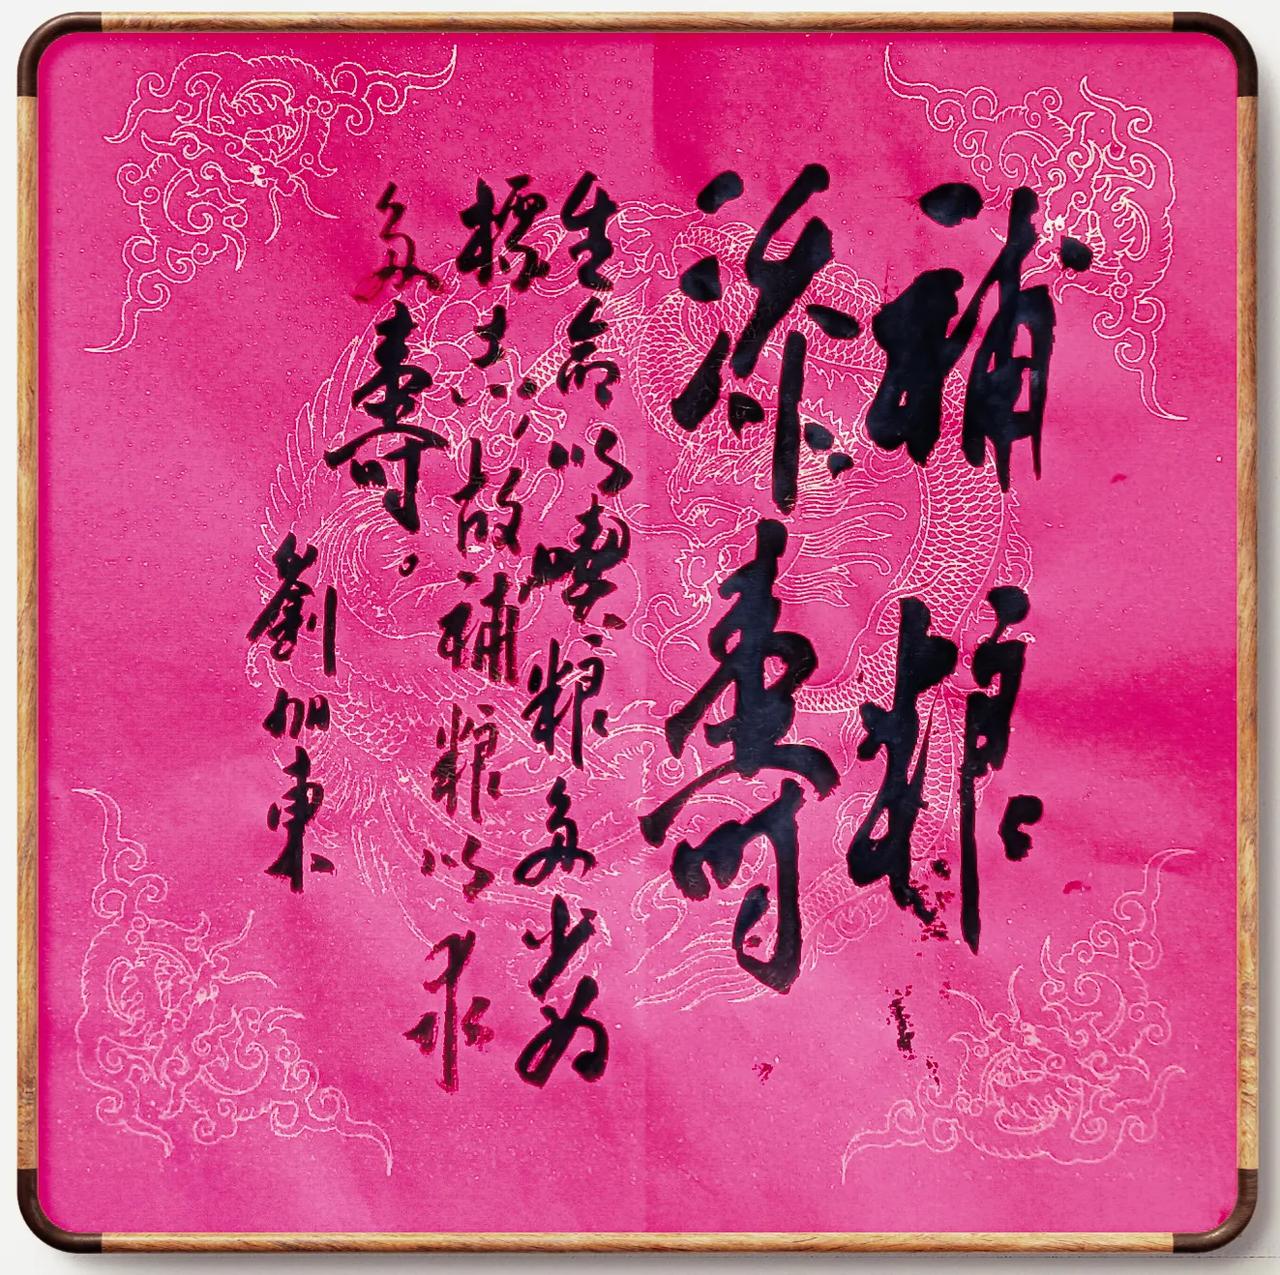 補糧
添壽
生命以喫糧多少为
標志，故補糧以求
多壽。
劉加東